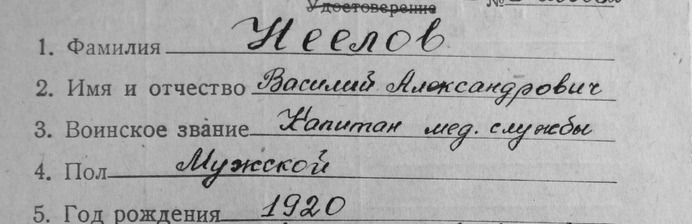 Удостоверение №
1. Фамилия Неелов
2. Имя и отчество Василий Александрович
3. Воинское звание Капитан мед. службы
4. Пол Мужской
5. Год рождения 1920